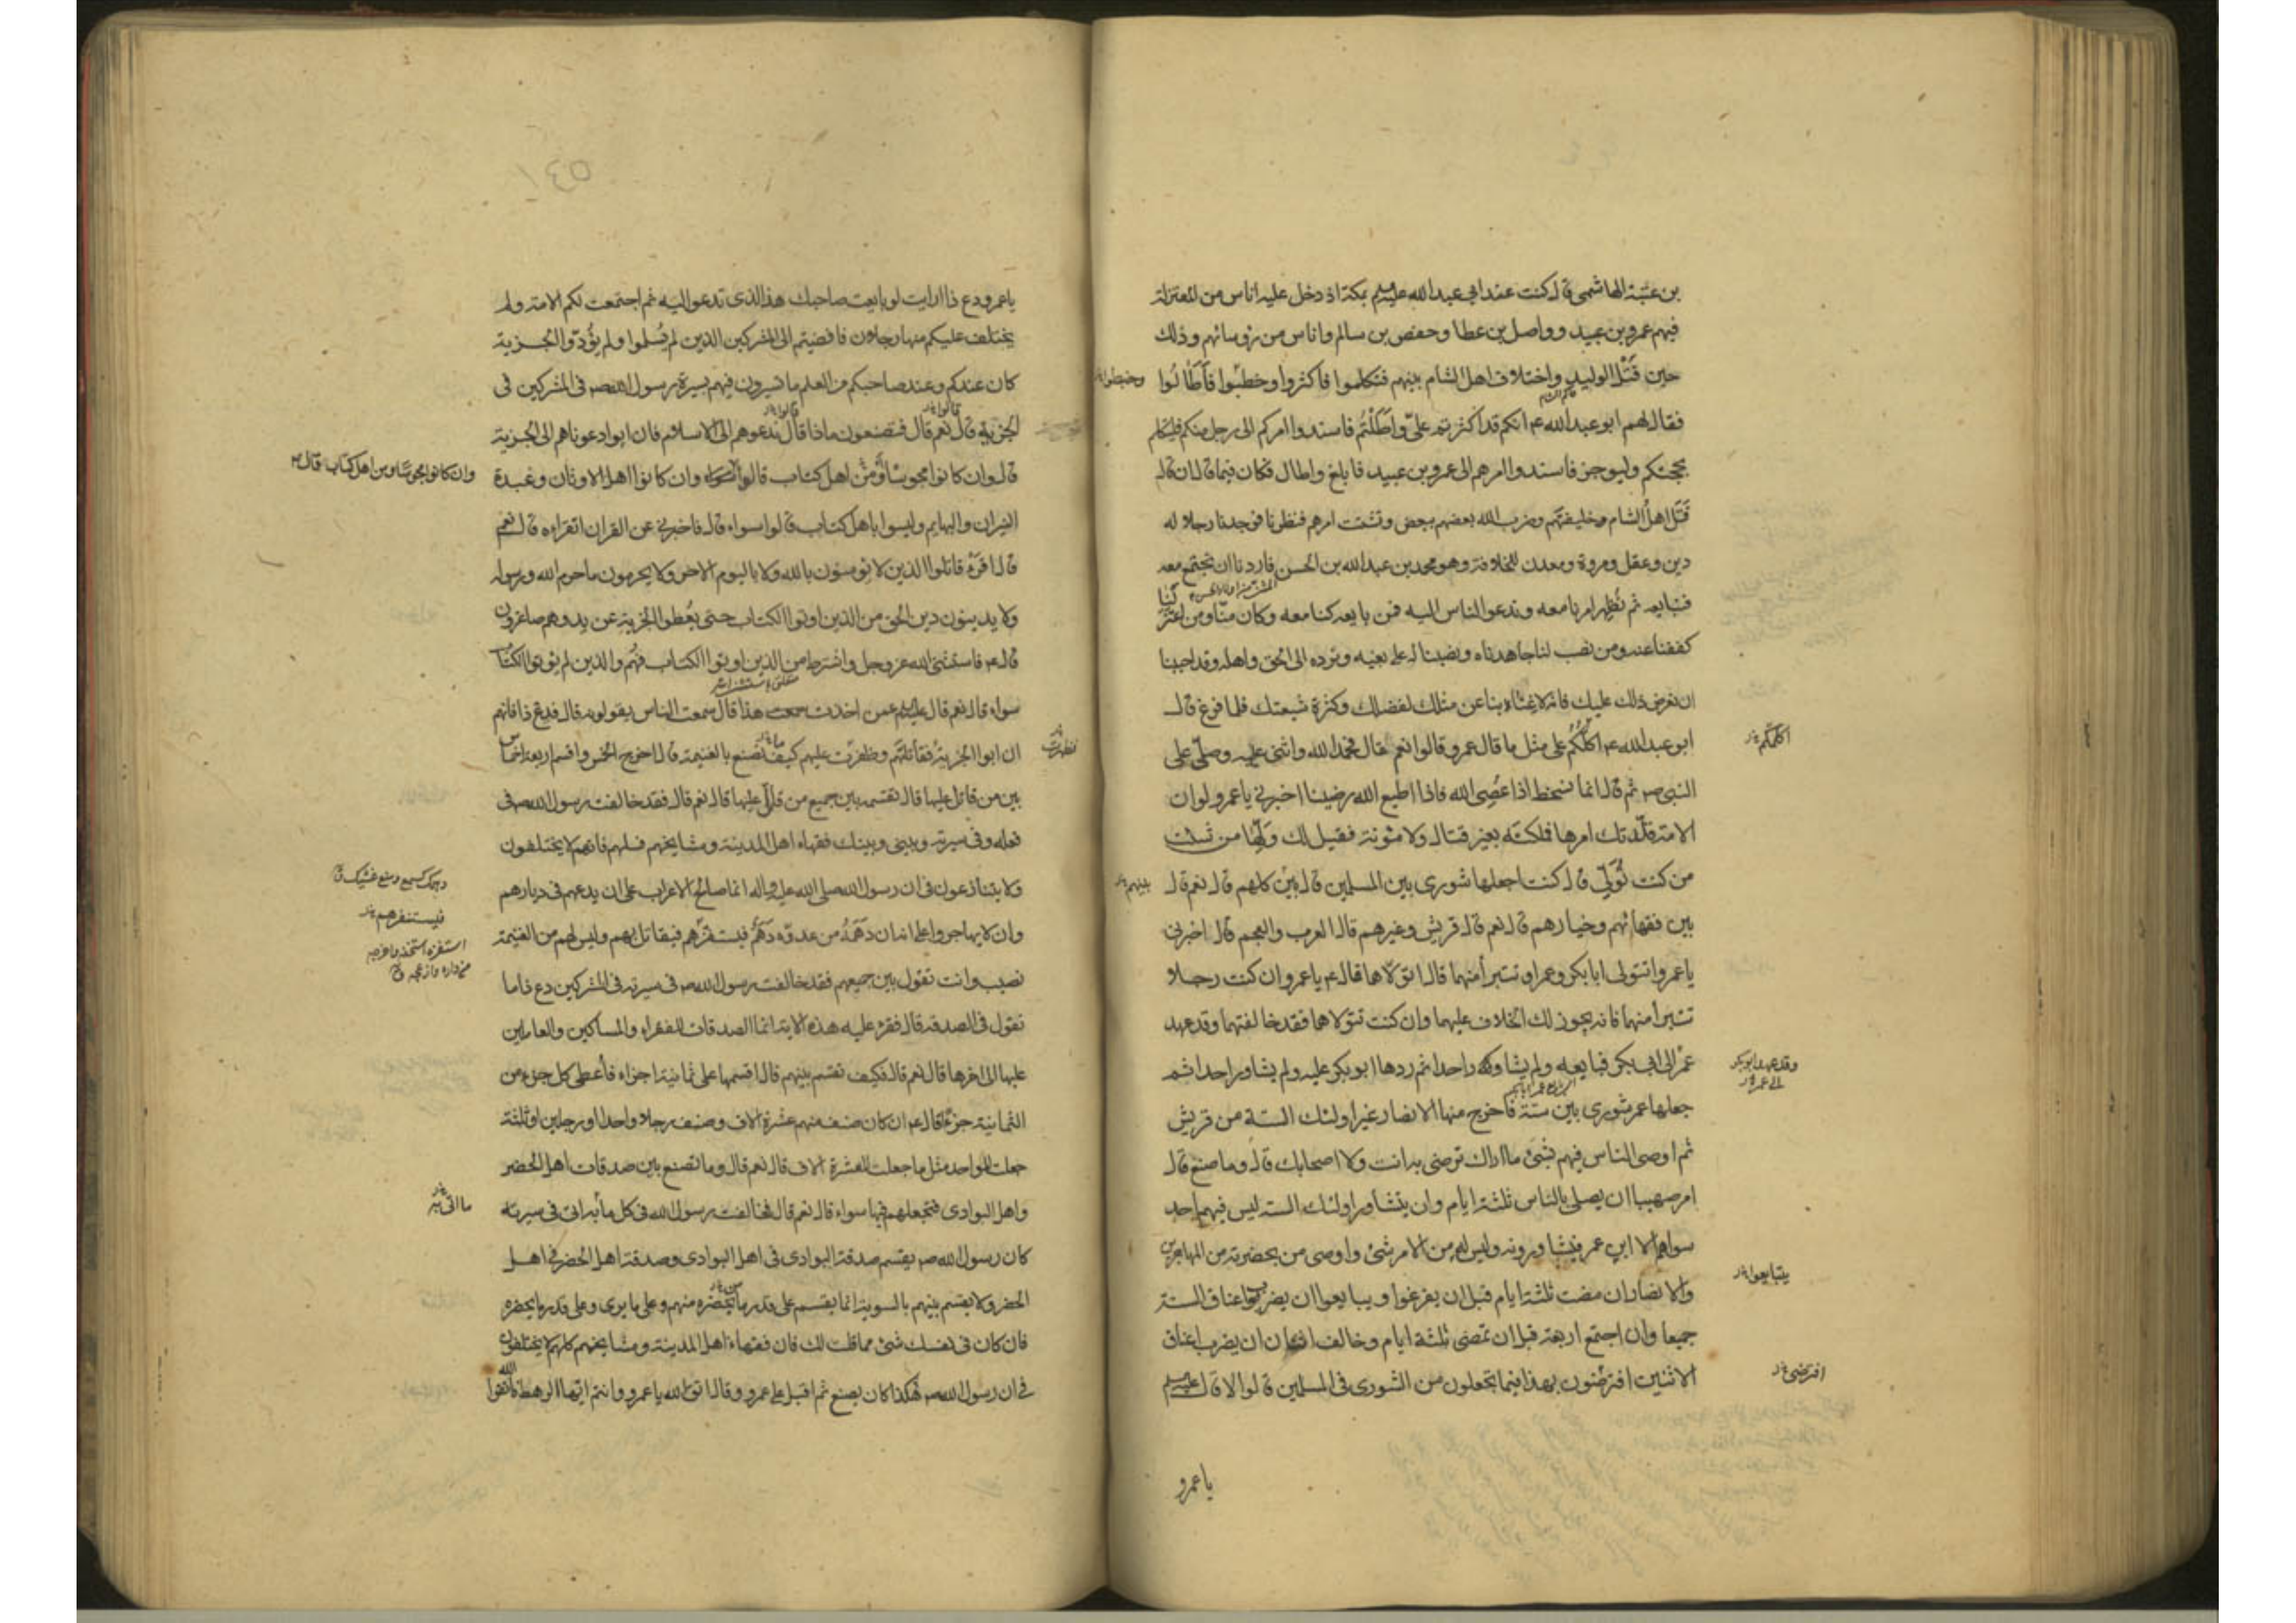 بن عتبة الهاشمى قال كنت عند ابى عبد الله عليه السلم بمكة اذ دخل عليه اناس من المعتزلة
فيهم عمرو بن عبيد وواصل بن عطا وحفص بن سالم واناس من رؤسائهم وذلك
حين قتل الوليد واختلاف اهل الشام بينهم فتكلموا فاكثروا وخطبوا فاطالوا
فقال لهم ابو عبد الله ع انكم قد اكثرتم علىّ واطلتم فاسندوا امركم الى رجل منكم فليتكلم
بحجتكم وليوجز فاسندوا امرهم الى عمرو بن عبيد فابلغ واطال فكان فيما قال ان قال
قتل اهل الشام خليفتهم وضرب الله بعضهم ببعض وتشتت امرهم فنظرنا فوجدنا رجلا له
دين وعقل ومروة ومعدن للخلافة وهو محمد بن عبد الله بن الحسن فاردنا ان نجتمع معه
فنبايعه ثم نظهر امرنا معه وندعو الناس اليه فمن بايعه كنا معه وكان منا ومن اعتزلنا
كففنا عنه ومن نصب لنا جاهدناه ونصبنا له على بغيه ونرده الى الحق واهله وقد احببنا
ان نعرض ذلك عليك فانه لا غناء بنا عن مثلك لفضلك وكثرة شيعتك فلما فرغ قال
ابو عبد الله ع اكلكم على مثل ما قال عمرو قالوا نعم فحمد الله واثنى عليه وصلّى على
النبى ص ثم قال انما نسخط اذا عُصِى الله فاذا اطيع الله رضينا اخبرنى يا عمرو لو ان
الامة قلّدتك امرها فملكته بغير قتال ولا مئونة فقيل لك وَلِّها من شئت
من كنت تُوَلّى قال كنت اجعلها شورى بين المسلمين قال بين كلهم قال نعم قال
بين فقهائهم وخيارهم قال نعم قال قريش وغيرهم قال العرب والعجم قال اخبرنى
يا عمرو اتتولى ابا بكر وعمر او تتبرأ منهما قال اتولاهما قال ع يا عمرو ان كنت رجلا
تتبرأ منهما فانه يجوز لك الخلاف عليهما وان كنت تتولاهما فقد خالفتهما وقد عهد
عمر الى ابى بكر فبايعه ولم يشاور احدا ثم ردها ابو بكر عليه ولم يشاور احدا ثم
جعلها عمر شورى بين ستة فاخرج منها الانصار غير اولئك الستة من قريش
ثم اوصى الناس فيهم بشئ ما اراك ترضى به انت ولا اصحابك قال وما صنع قال
امر صهيبا ان يصلى بالناس ثلثة ايام وان يتشاور اولئك الستة ليس فيهم احد
سواهم الا ابن عمر يشاورونه وليس له من الامر شئ واوصى من بحضرته من المهاجرين
والانصار ان مضت ثلثة ايام قبل ان يفرغوا ويبايعوا ان يضربوا اعناق الستة
جميعا وان اجتمع اربعة قبل ان تمضى ثلثة ايام وخالف اثنان ان يضرب اعناق
الاثنين افترضون بهذا فيما تجعلون من الشورى فى المسلمين قالوا لا قال عليه السلم
يا عمرو
اكلمكم
بينهم
وقد عهد ابو بكر
الى عمر
يتبايعوا
افترضى
يا عمرو دع ذا ارايت لو بايعت صاحبك هذا الذى تدعو اليه ثم اجتمعت لكم الامة ولم
يختلف عليكم منها رجلان فافضيتم الى المشركين الذين لم يُسلموا ولم يؤدّوا الجزية
كان عندكم وعند صاحبكم من العلم ما تسيرون فيهم بسيرة رسول الله ص فى المشركين فى
الجزية قال نعم قال فتصنعون ماذا قال ندعوهم الى الاسلام فان ابوا دعوناهم الى الجزية
قال وان كانوا مجوسا ومن اهل كتاب قالوا سواء وان كانوا اهل الاوثان وعبدة
النيران والبهايم وليسوا باهل كتاب قالوا سواء قال فاخبرنى عن القران اتقراءه قال نعم
قال اقرء قاتلوا الذين لا يؤمنون بالله ولا باليوم الاخر ولا يحرمون ما حرم الله ورسوله
ولا يدينون دين الحق من الذين اوتوا الكتاب حتى يعطوا الجزية عن يد وهم صاغرون
قال ع فاستثنى الله عز وجل واشترط من الذين اوتوا الكتاب فهم والذين لم يؤتوا الكتاب
سواء قال نعم قال عليه السلم عمن اخذت هذا قال سمعت الناس يقولونه قال فدع ذا فانهم
ان ابوا الجزية فقاتلتهم وظفرت عليهم كيف تصنع بالغنيمة قال اخرج الخمس واقسم اربعة اخماس
بين من قاتل عليها قال تقسمه بين جميع من قاتل عليها قال نعم قال فقد خالفت رسول الله ص فى
فعله وفى سيرته وبينى وبينك فقهاء اهل المدينة ومشايخهم فسلهم فانهم لا يختلفون
ولا يتنازعون فى ان رسول الله صلى الله عليه واله انما صالح الاعراب على ان يدعهم فى ديارهم
وان لا يهاجروا على انه ان دهمه من عدوّه دهم فيستفزّهم فيقاتل بهم وليس لهم من الغنيمة
نصيب وانت تقول بين جميعهم فقد خالفت رسول الله ص فى سيرته فى المشركين دع ذا ما
تقول فى الصدقة قال فقرء عليه هذه الاية انما الصدقات للفقراء والمساكين والعاملين
عليها الى اخرها قال نعم قال فكيف تقسم بينهم قال اقسمها على ثمانية اجزاء فأعطى كل جزء من
الثمانية جزءا قال ع ان كان صنف منهم عشرة الاف وصنف رجلا واحدا او رجلين او ثلثة
جعلت للواحد مثل ما جعلت للعشرة الاف قال نعم قال وما تصنع بين صدقات اهل الحضر
واهل البوادى فتجعلهم فيها سواء قال نعم قال فخالفت رسول الله فى كل ما به اتى فى سيرته
كان رسول الله ص يقسم صدقة البوادى فى اهل البوادى وصدقة اهل الحضر فى اهل
الحضر ولا يقسم بينهم بالسوية انما يقسم على قدر ما يحضره منهم وعلى ما يرى وعلى قدر ما يحضره
فان كان فى نفسك شئ مما قلت لك فان فقهاء اهل المدينة ومشايخهم كلهم لا يختلفون
فى ان رسول الله ص هكذا كان يصنع ثم اقبل على عمرو وقال اتق الله يا عمرو وانتم ايها الرهط فاتقوا الله
وان كانوا مجوسا ومن اهل كتاب قال
فيستنفرهم